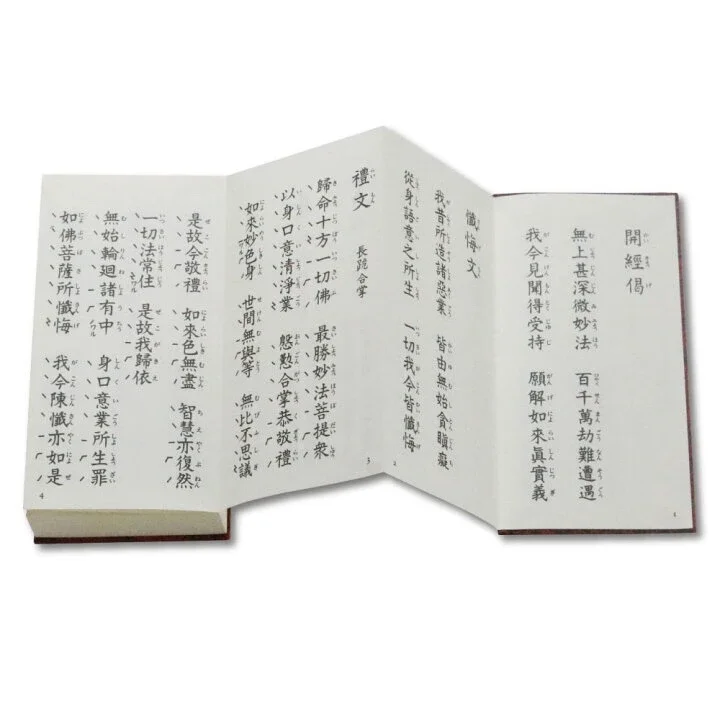 開經偈
無上甚深微妙法 百千萬劫難遭遇
我今見聞得受持 願解如來眞實義
1
懺悔文
我昔所造諸惡業 皆由無始貪瞋癡
從身語意之所生 一切我今皆懺悔
2
禮文 長跪合掌
歸命十方一切佛 最勝妙法菩提衆
以身口意清淨業 慇懃合掌恭敬禮
如來妙色身 世間無與等 無比不思議
3
是故今敬禮 如來色無盡 智慧亦復然
一切法常住 是故我歸依
無始輪廻諸有中 身口意業所生罪
如佛菩薩所懺悔 我今陳懺亦如是
4